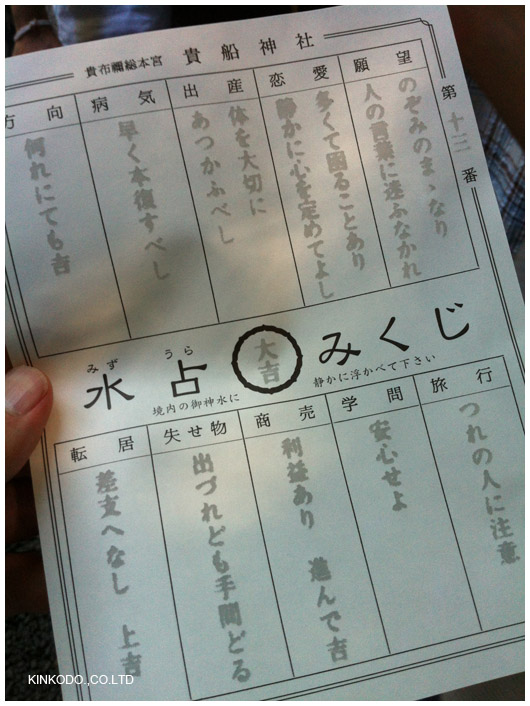 貴布禰総本宮 貴船神社
第十三番
願望
のぞみのまゝなり
人の言葉に迷ふなかれ
恋愛
多くて困ることあり
静かに心を定めてよし
出産
体を大切に
あつかふべし
病気
早く本復すべし
方向
何れにても吉
みず うら
水占 大吉 みくじ
境内の御神水に 静かに浮かべて下さい
旅行
つれの人に注意
学問
安心せよ
商売
利益あり 進んで吉
失せ物
出づれども手間どる
転居
差支へなし 上吉
KINKODO.,CO.LTD